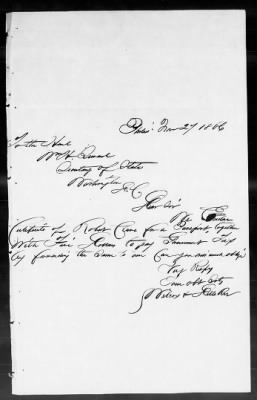 Nov 27 1866
To the Hon
Wm H Seward
Secretary of State
Washington
D.C.
Dear Sir
We Enclose
Certificate of Robert for a Passport together
With Five Dollars to pay Government Tax
by the same to our you will much oblige
Very Resp
Your obt
Wilcox &